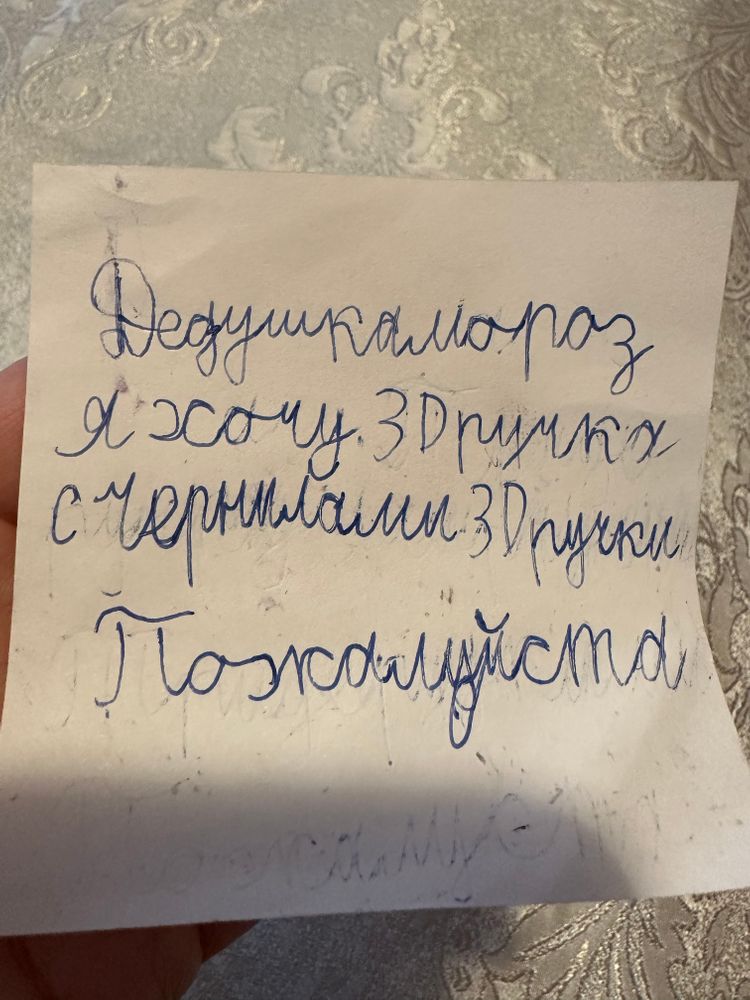 Дедушкамороз
я хочу 3D ручка
с чернилами 3D ручки
Пожалуйста